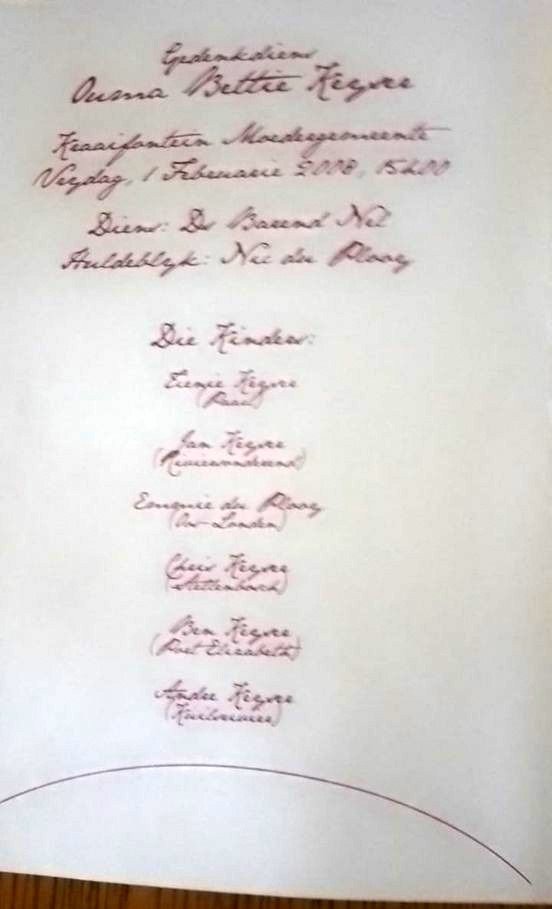 Gedenkdiens
Ouma Bettie Keyser
Kraaifontein Moedergemeente
Vrydag, 1 Februarie 2008, 15h00
Diens: Ds Barend Nel
Huldeblyk: Nic du Plooy
Die Kinders:
Keyser
(Paarl)
Jan Keyser
(Riviersonderend)
du Plooy
(Oos-Londen)
Chris Keyser
(Stellenbosch)
Ben Keyser
(Port Elizabeth)
Andre Keyser
(Kuilsrivier)